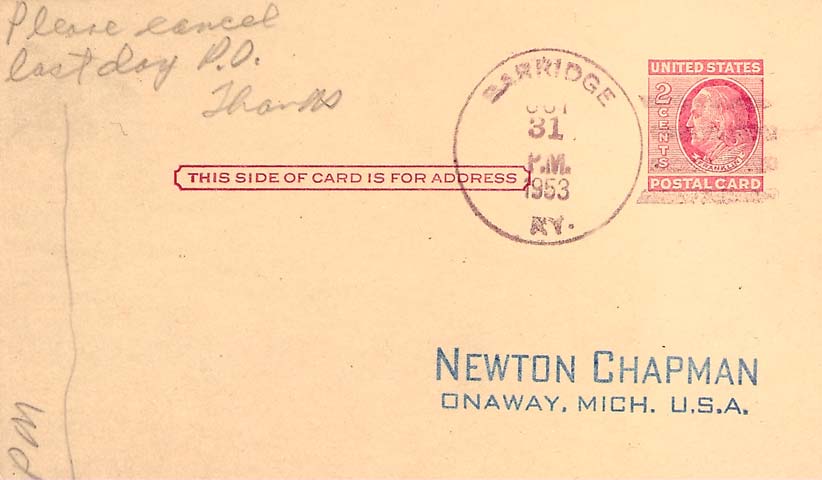 Please cancel
last day P.O.
Thanks
BARRIDGE
OCT
31
P.M.
1953
KY.
UNITED STATES
2 CENTS
FRANKLIN
POSTAL CARD
THIS SIDE OF CARD IS FOR ADDRESS
NEWTON CHAPMAN
ONAWAY, MICH. U.S.A.
PM